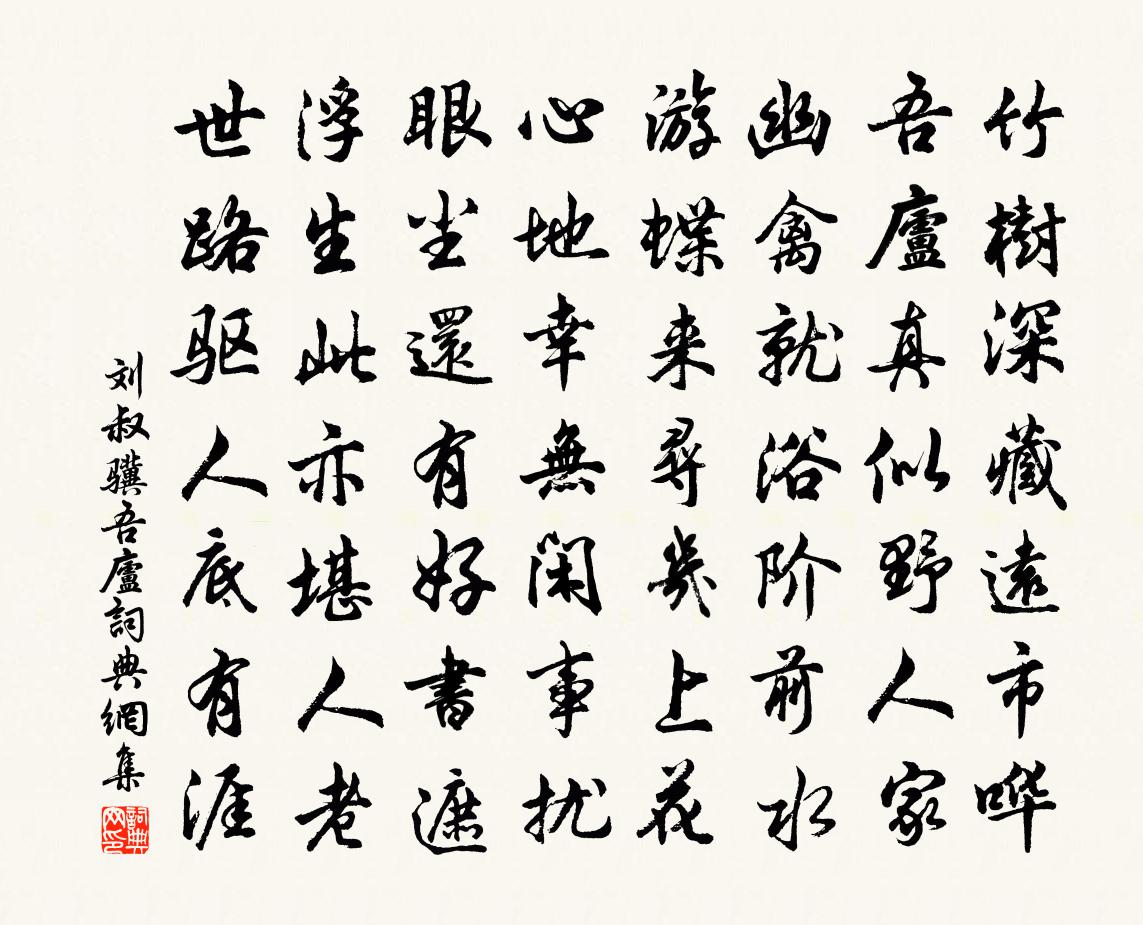 竹樹深藏遠市哗
吾廬真似野人家
幽禽就浴阶前水
游蝶来尋幾上花
心地幸無閑事扰
眼尘還有好書遮
浮生此亦堪人老
世路驱人底有涯
刘叔骥吾廬詞典網集
詞典网印